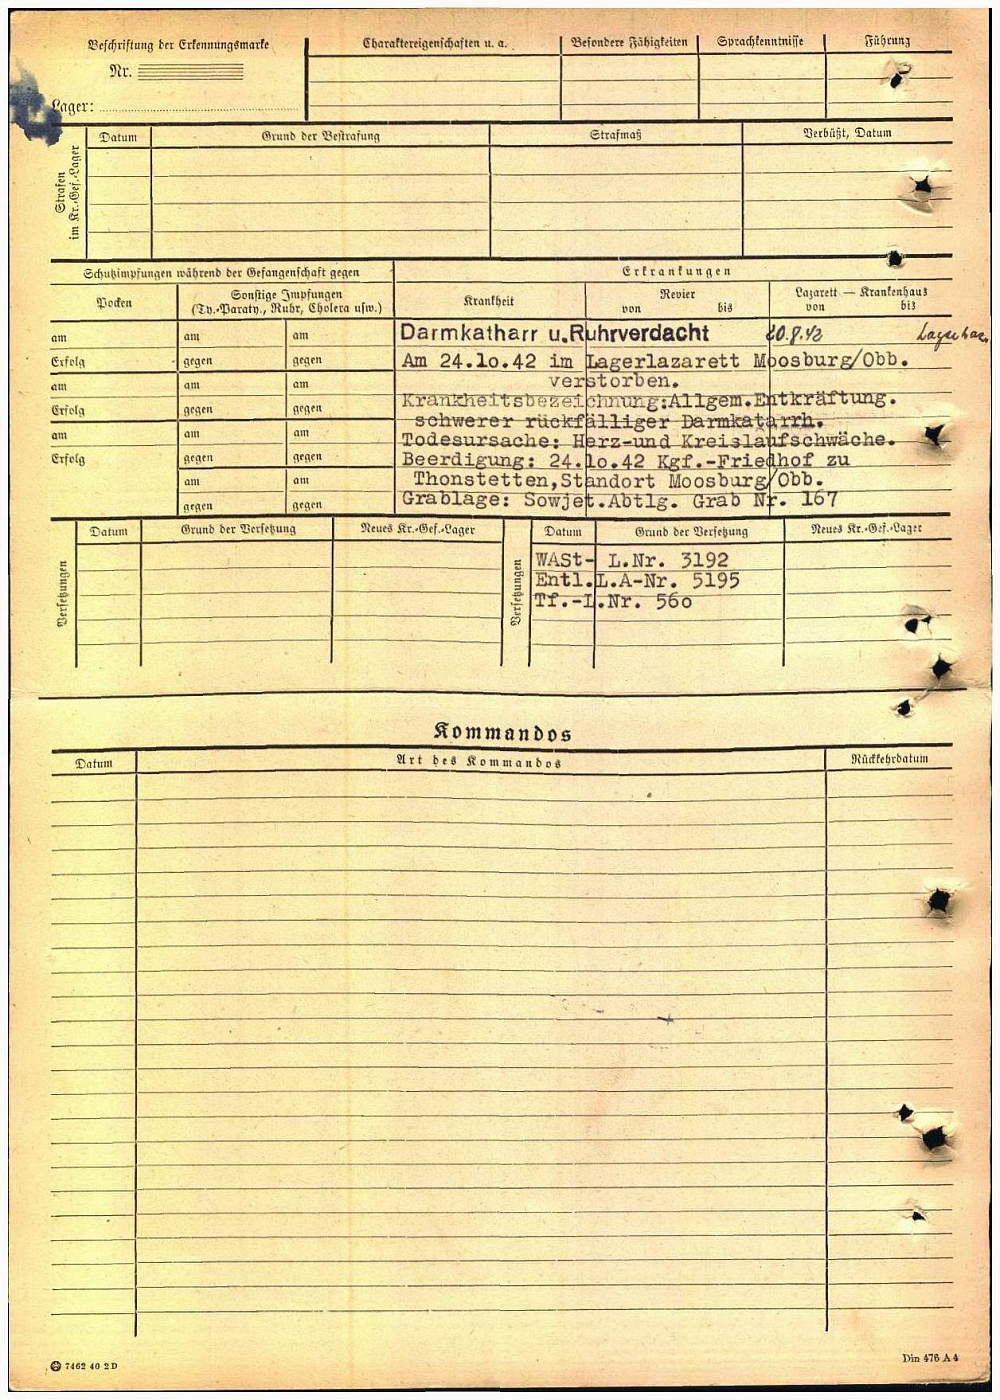 Beschriftung der Erkennungsmarke
Nr.
Lager:
Charaktereigenschaften u. a.
Besondere Fähigkeiten
Sprachkenntnisse
Führung
Strafen
im Kr.-Gef.-Lager
Datum
Grund der Bestrafung
Strafmaß
Verbüßt, Datum
Schutzimpfungen während der Gefangenschaft gegen
Erkrankungen
Pocken
Sonstige Impfungen
(Ty.-Paraty., Ruhr, Cholera usw.)
Krankheit
Revier
von bis
Lazarett — Krankenhaus
von bis
am am am
Erfolg gegen gegen
am am am
Erfolg gegen gegen
am am am
Erfolg gegen gegen
am am
gegen gegen
Darmkatharr u.Ruhrverdacht 20.8.42
Am 24.10.42 im Lagerlazarett Moosburg/Obb.
verstorben.
Krankheitsbezeichnung:Allgem.Entkräftung.
schwerer rückfälliger Darmkatarrh.
Todesursache: Herz-und Kreislaufschwäche.
Beerdigung: 24.10.42 Kgf.-Friedhof zu
Thonstetten,Standort Moosburg/Obb.
Grablage: Sowjet.Abtlg. Grab Nr. 167
Versetzungen
Datum
Grund der Versetzung
Neues Kr.-Gef.-Lager
Versetzungen
Datum
Grund der Versetzung
Neues Kr.-Gef.-Lager
WASt- L.Nr. 3192
Entl.L.A-Nr. 5195
Tf.-L.Nr. 560
Kommandos
Datum
Art des Kommandos
Rückkehrdatum
7462 40 2D
Din 476 A4